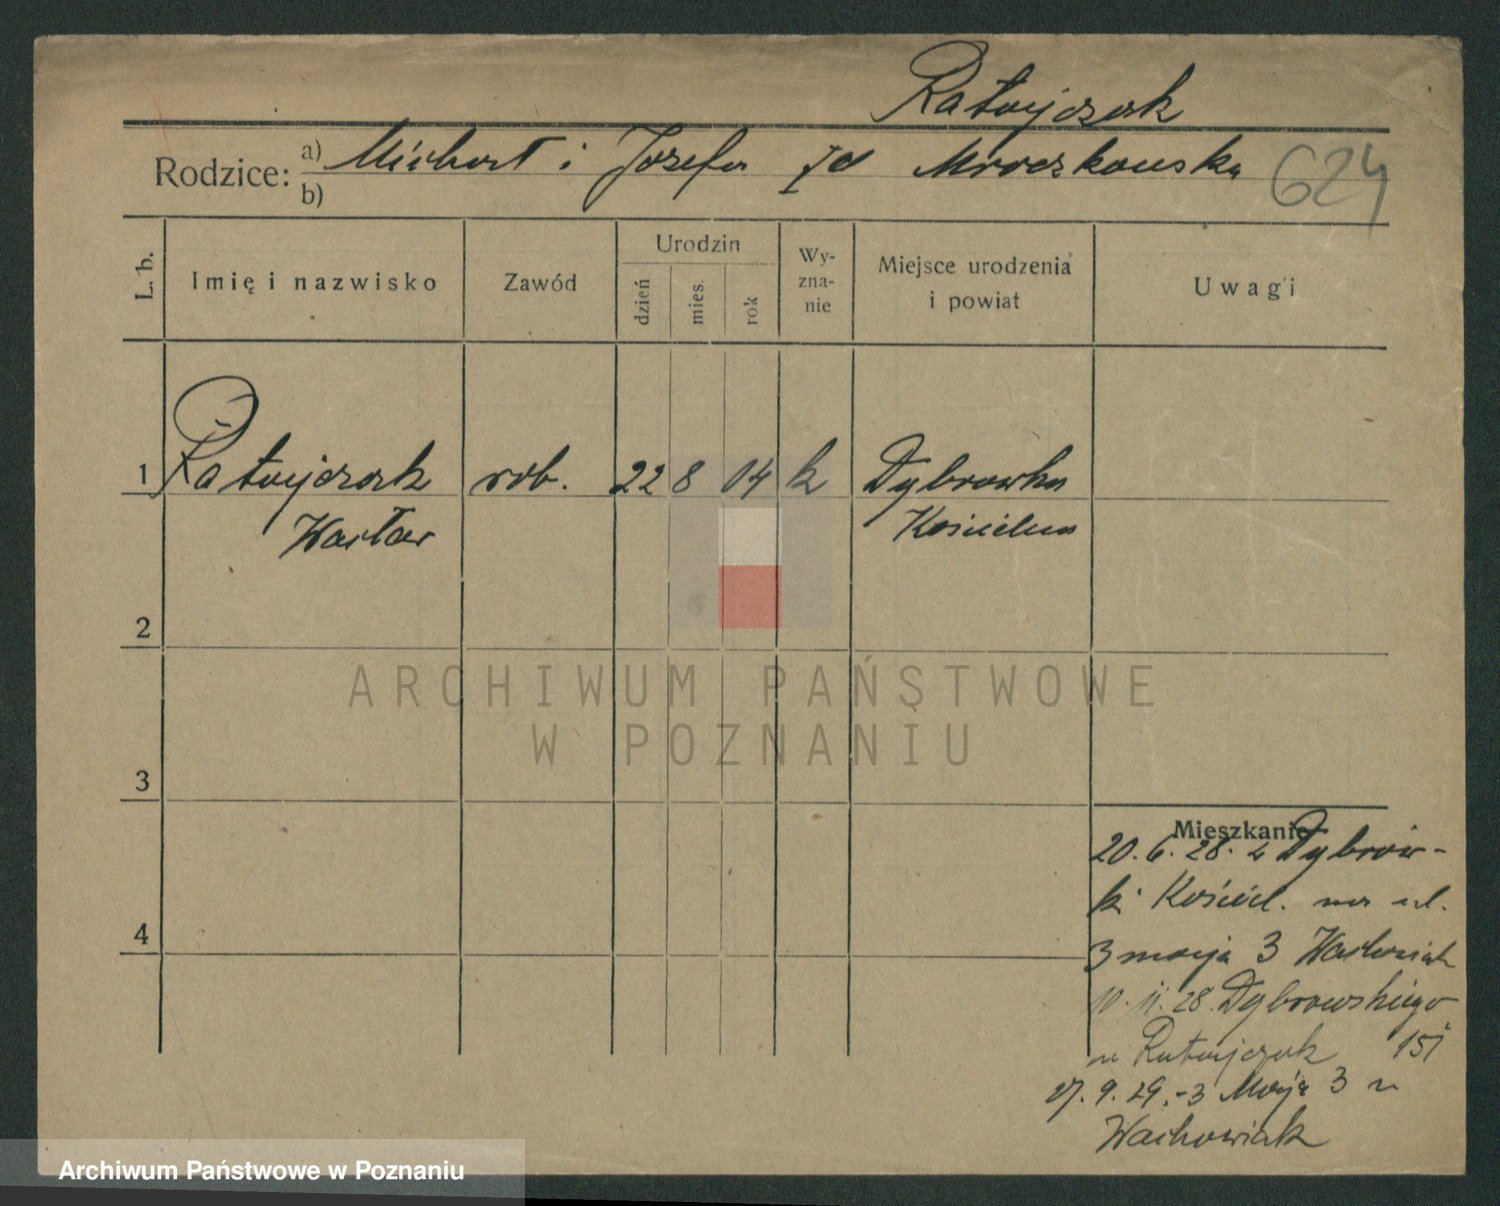 Ratajczak
Rodzice: a) Michał i Józefa zd Mroczkowska 624
b)
L. b. Imię i nazwisko Zawód Urodzin dzień mies. rok Wy-zna-nie Miejsce urodzenia i powiat Uwagi
1 Ratajczak rob. 22 8 04 k Dąbrówka
Wacław Kościelna
2
ARCHIWUM PAŃSTWOWE
W POZNANIU
3
Mieszkanie
20. 6. 28. z Dąbrów-
ki Kościel. na ul.
4
3 maja 3 Wachowiak
10. 11. 28. Dąbrowskiego
u Ratajczak 151
17. 9. 29. - 3 Maja 3 u
Wachowiak
Archiwum Państwowe w Poznaniu